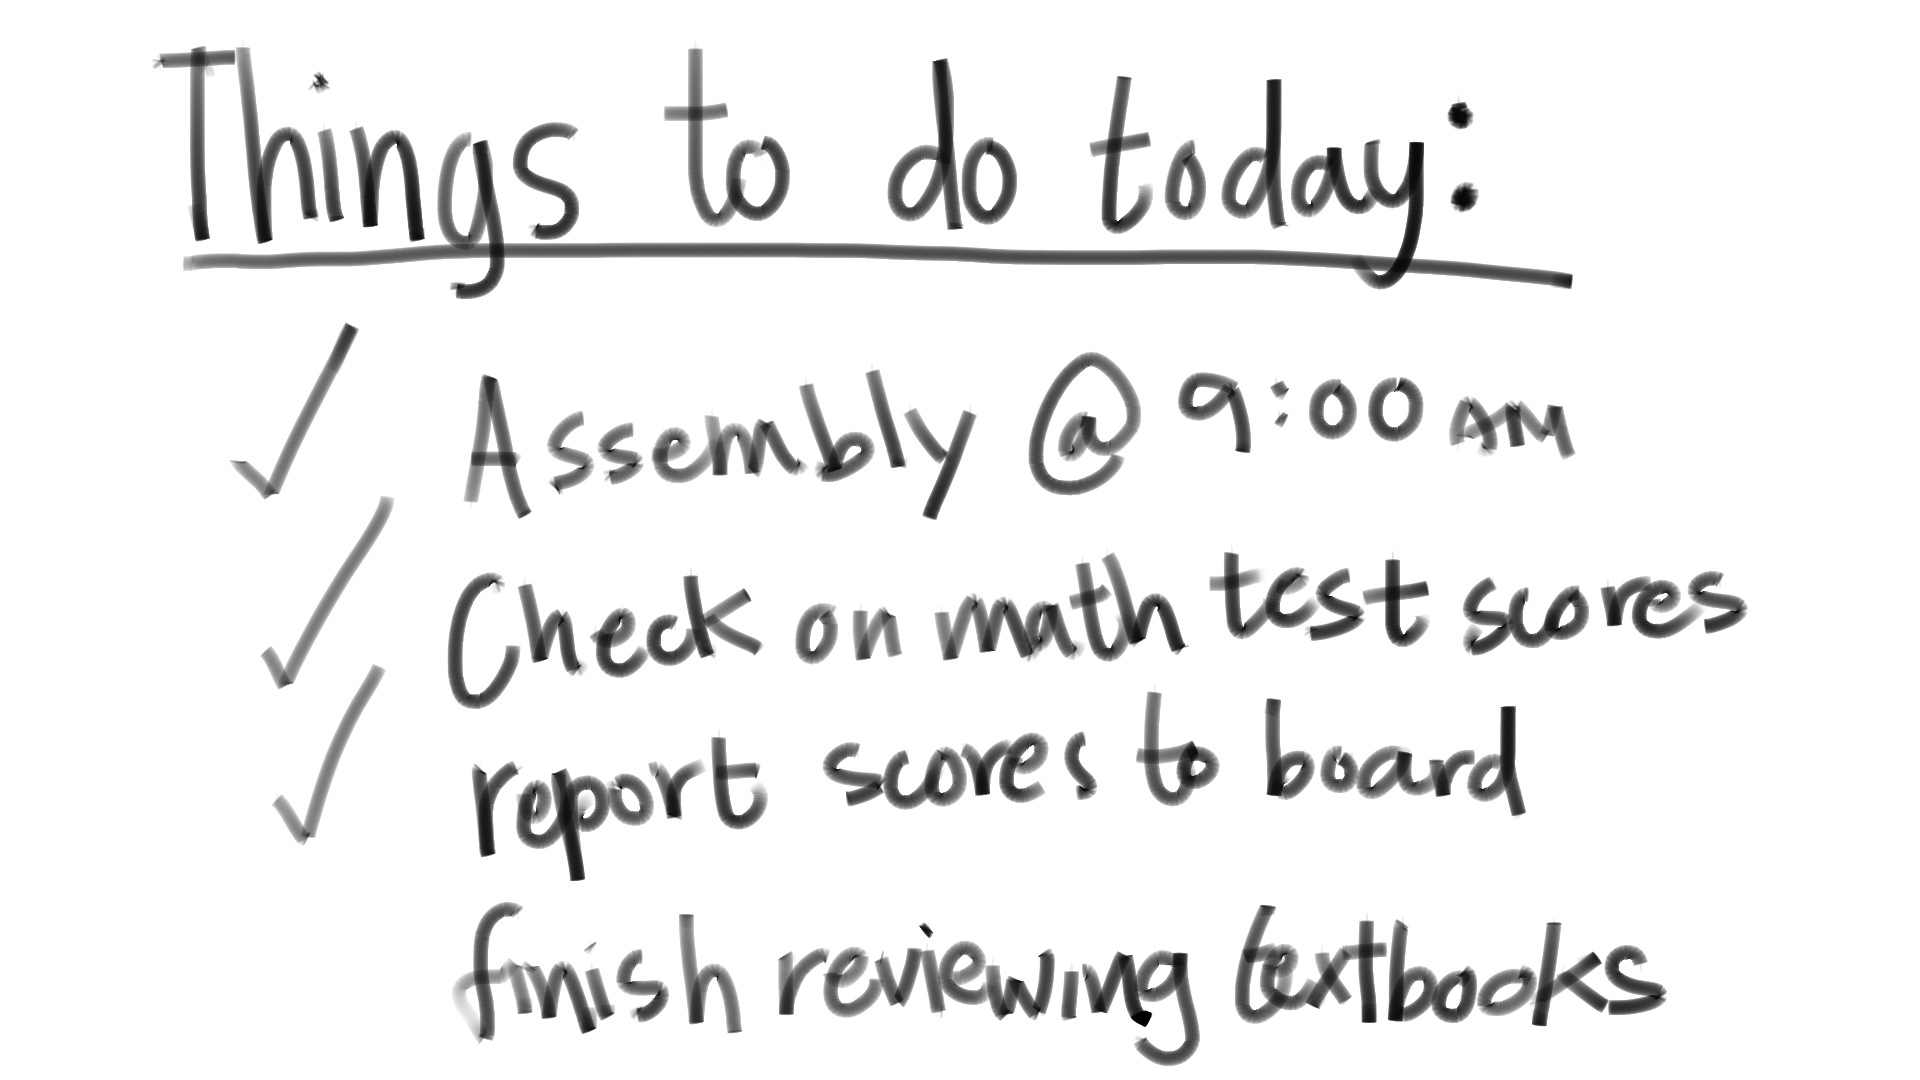 Things to do today:
✓ Assembly @ 9:00 AM
✓ Check on math test scores
✓ report scores to board
finish reviewing textbooks